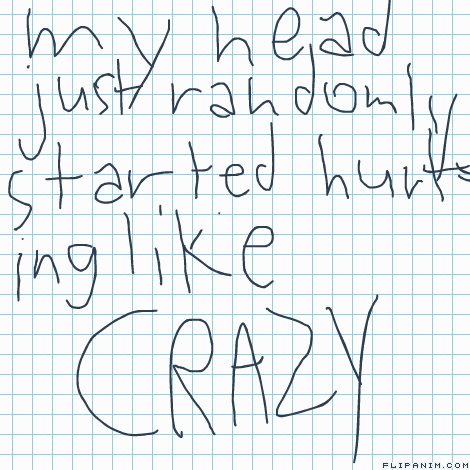 my head
just randomly
started hurt
ing like
CRAZY
FLIPANIM.COM